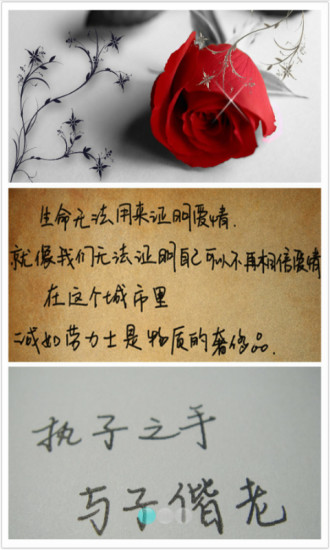 生命无法用来证明爱情.
就像我们无法证明自己可以不再相信爱情
在这个城市里
诚如劳力士是物质的奢侈品.
执子之手
与子偕老